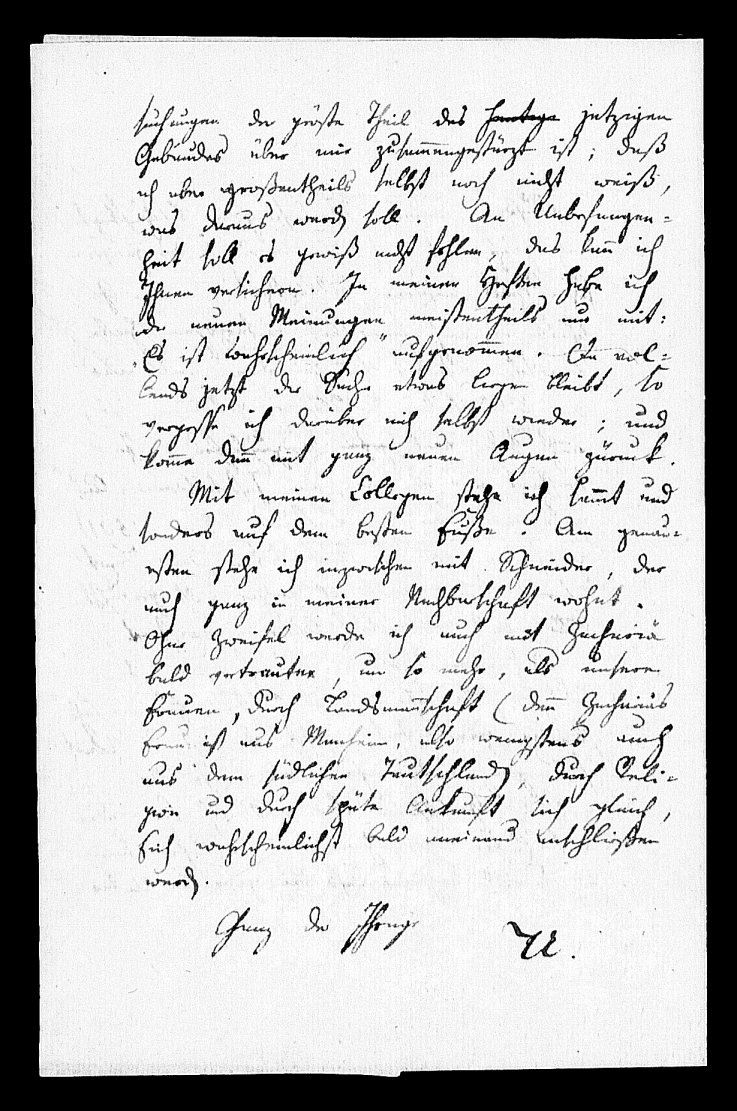 suchungen der gröste Theil des heutige jetzigen
Gebäudes über mir zusammengestürzt ist; daß
ich aber großentheils selbst noch nicht weiß,
was daraus werden soll. An Unbefangen-
heit soll es gewiß nicht fehlen, das kann ich
Ihnen versichern. In meinen Heften habe ich
die neuen Meinungen meistentheils nur mit:
"Es ist wahrscheinlich" aufgenommen. Da vol-
lends jetzt die Sache etwas liegen bleibt, so
vergesse ich darüber mich selbst wieder; und
komme dann mit ganz neuen Augen zurück.
Mit meinen Collegen stehe ich samt und
sonders auf dem besten Fuße. Am genau-
esten stehe ich inzwischen mit Schneider, der
auch ganz in meiner Nachbarschaft wohnt.
Ohne Zweifel werde ich auch mit Zachariä
bald vertrauter, um so mehr, als unsere
Frauen, durch Landsmannschaft (denn Zachariäs
Frau ist aus Manheim, also wenigstens auch
aus dem südlichen Teutschland), durch Reli-
gion und durch späte Ankunft sich gleich,
sich wahrscheinlichst bald aneinand anschließen
werden.
Ganz der Ihrige